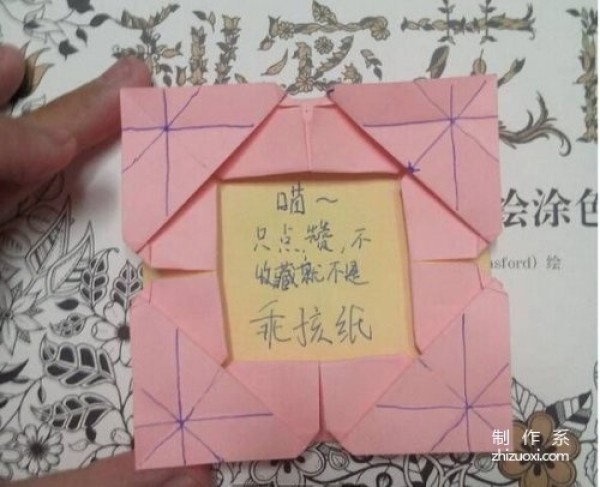 喵～
只点赞,不
收藏就不是
乖孩纸
绘涂色
asford) 绘
制作系
zhizuoxi.com